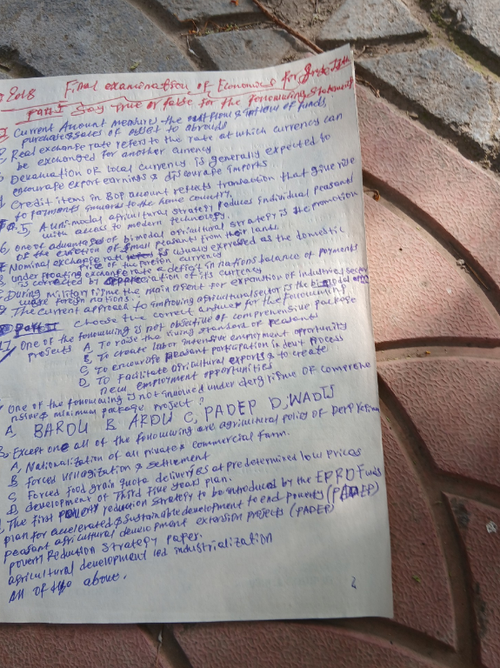 2018 Final examination of Economics for grade
part I Say true or false for the following statements
1 Current Amount measure the cash flows & inflow of funds,
purchase sales of asset to abroad
2, Real exchange rate refers to the rate at which currency can
be exchanged for another currency
3 Devaluation of local currency is generally expected to
encourage export earnings & discourage imports
4 Credit items in BOP amount reflects transaction that give rise
to payments inward to the home country.
5, A uni-modal agricultural strategy produces individual peasants
with access to modern technology.
6, one of advantages of bimodal agricultural strategy is the promotion
of the of small peasants from land.
7 Nominal exchange rate is usually expressed as the domestic
price of the foreign currency
8 under floating exchange rate a deficit in nations balance of payments
is corrected by its currency
9, During military time the main agent for expansion of industrial sector
was foreign nations.
10 The current approach to improving agricultural sector is the bimodal
Part II choose the correct answer for the following
11, One of the following is not objective of comprehensive package
projects A To raise the living standard of peasants
B To create labor intensive employment opportunity
C To encourage peasant participation in devt process
D To facilitate agricultural exports & to create
new employment opportunities
One of the following is not included under derg regime of comprehe
nsive & minimum package project?
A, BARDU B ARDU C, PADEP D, WADU
3, Except one all of the following are agricultural policy of Derg regime
A, Nationalization of all private & commercial farm.
B forced villagization & settlement
C Forced food grain quota deliveries at predetermined low prices
D development of Third Five years plan.
The first poverty reduction strategy to be introduced by the EPRDF was
plan for accelerated & sustainable development to end poverty (PADEP)
peasant agricultural development extension projects (PADEP)
poverty Reduction strategy paper.
agricultural development led industrialization
all of the above.